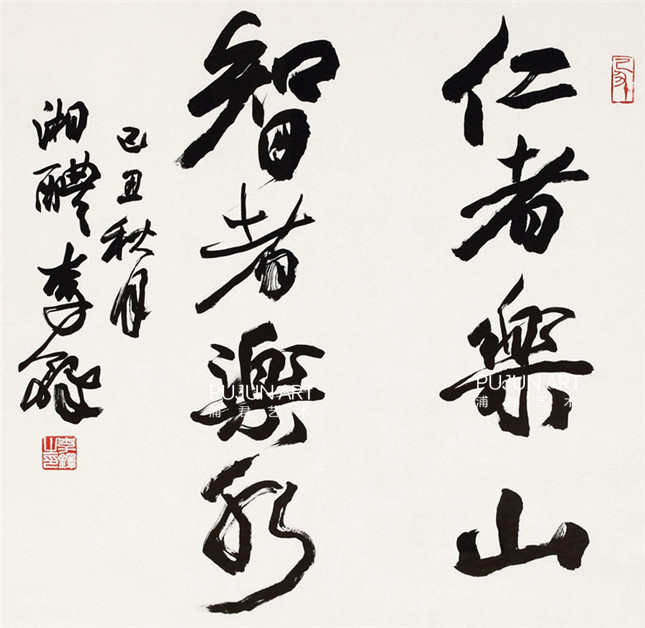 仁者樂山
智者樂水
己丑秋月
湘醴李鐸
PUJUN ART
浦君艺术
PUJUN ART
浦君艺术
李鐸之印